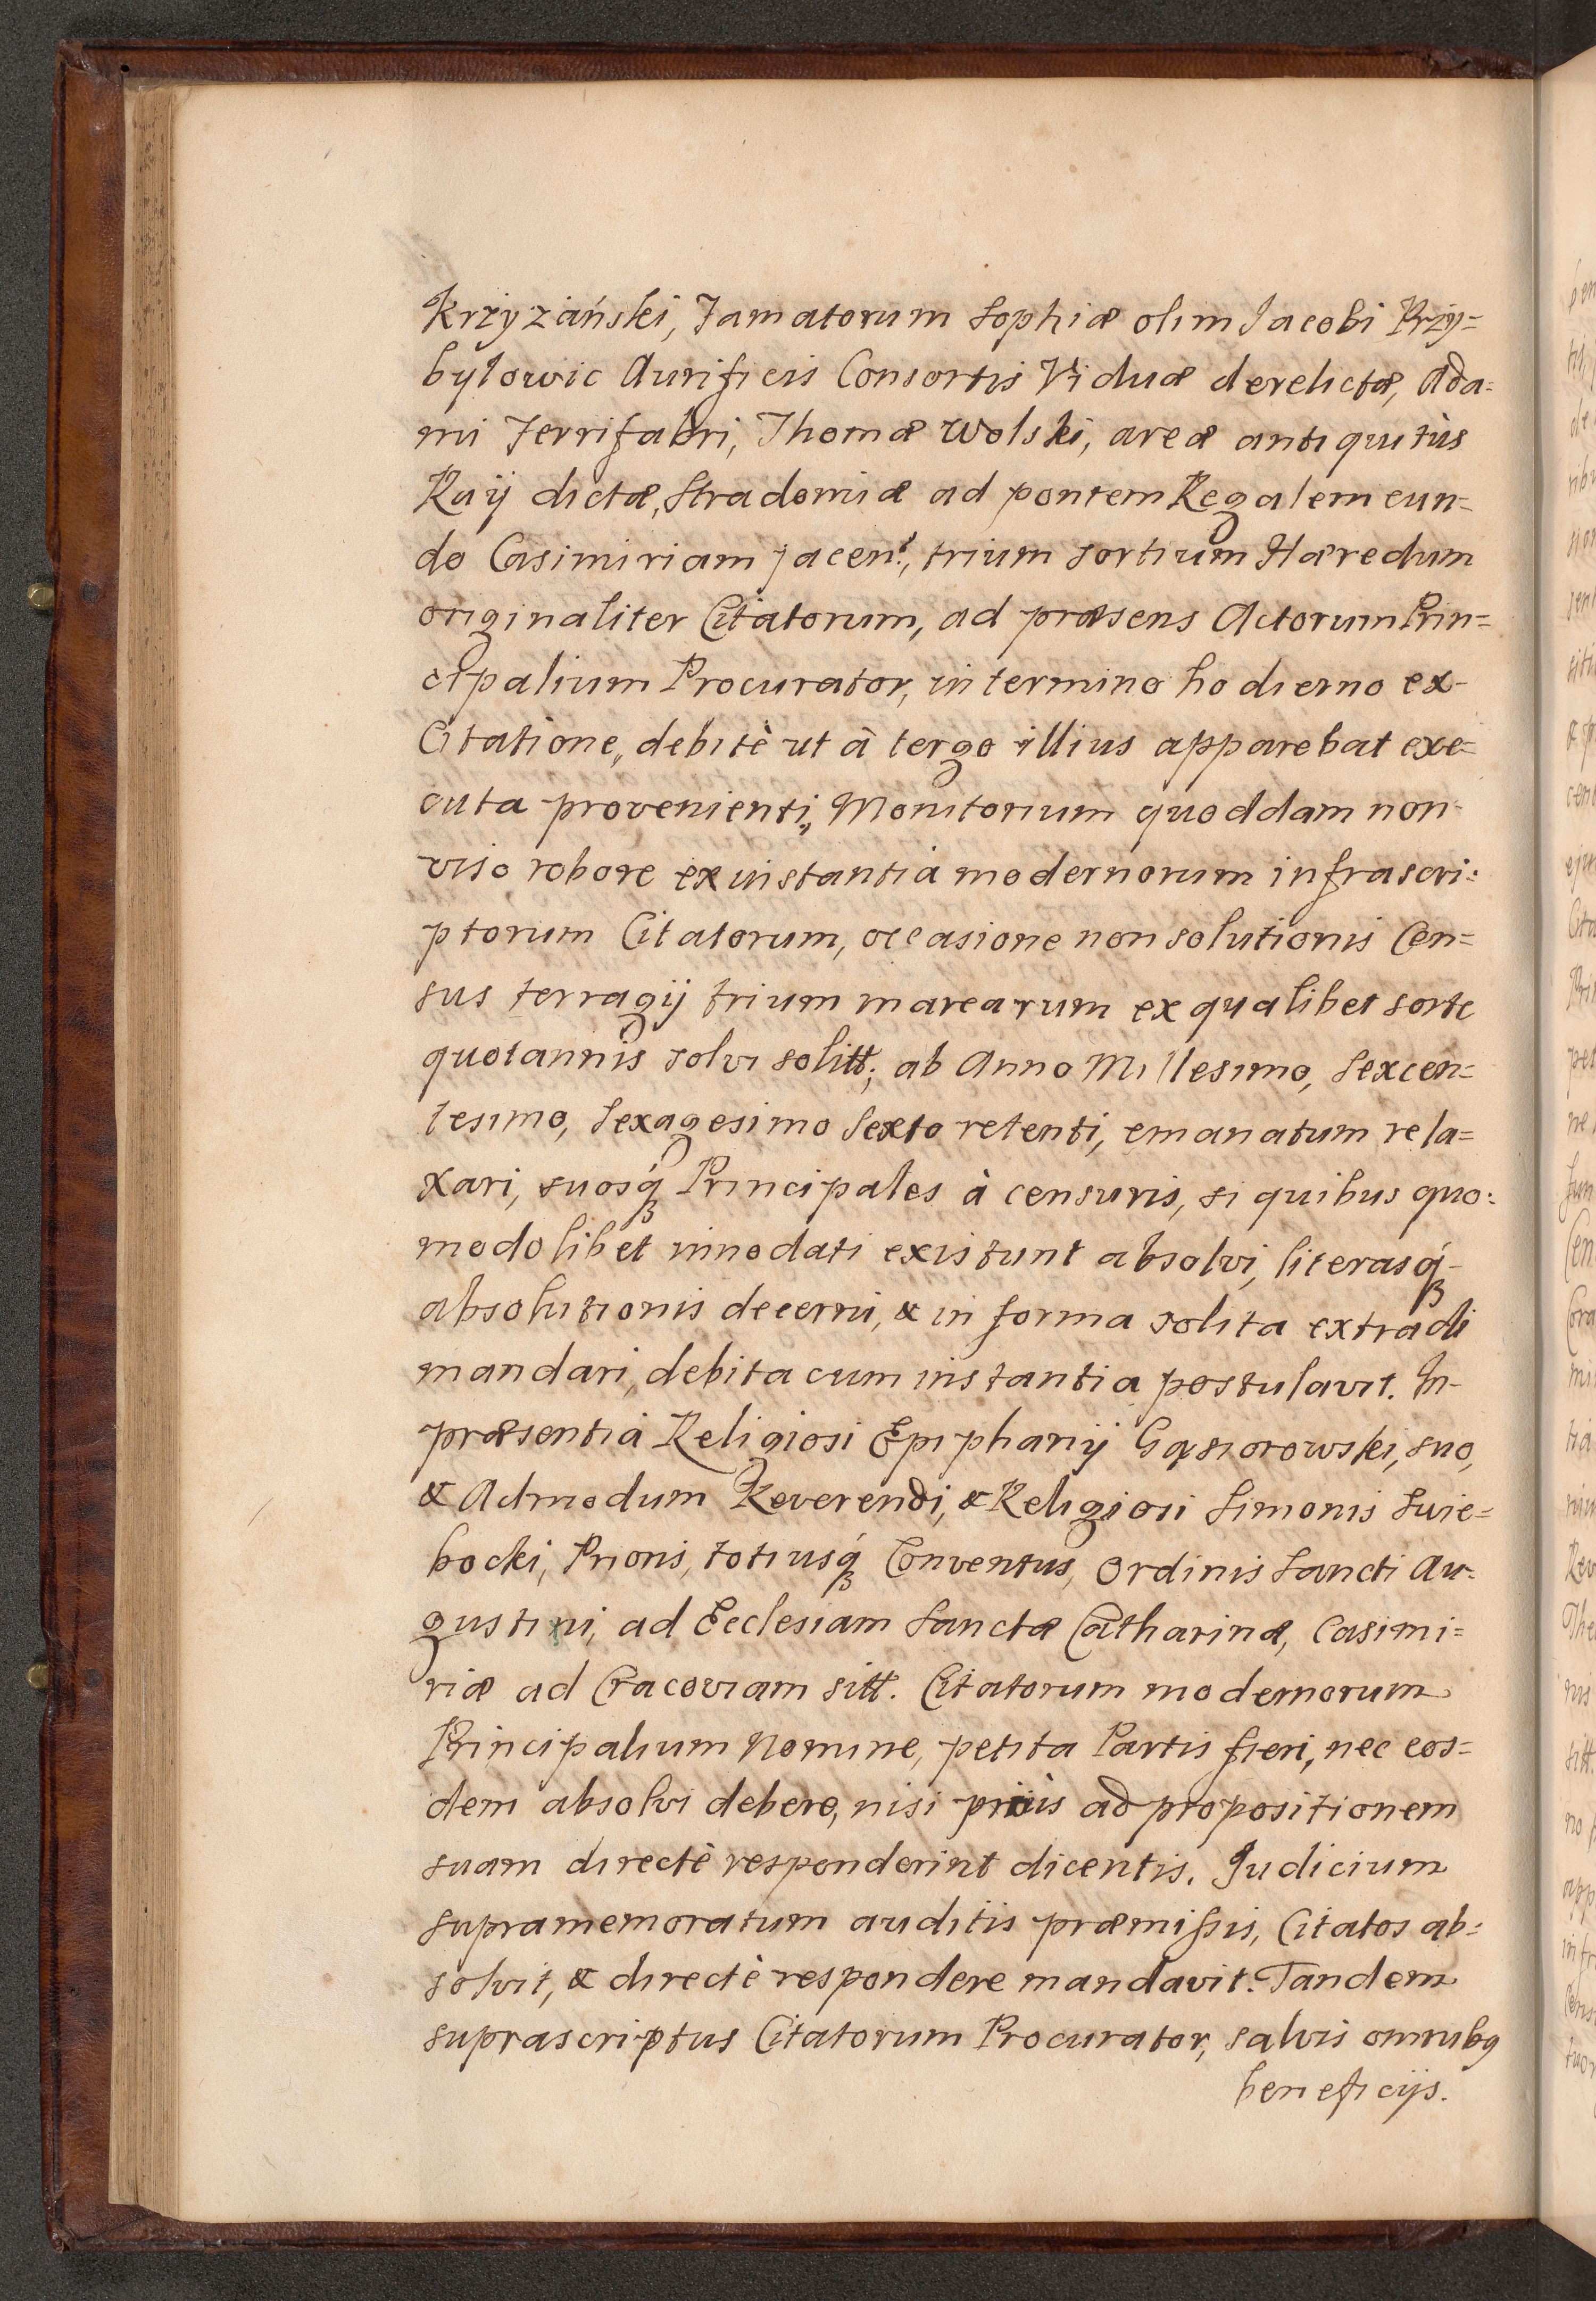 Krzyzański, Famatorum Sophiæ olim Jacobi Przy=
bylowic Aurificis Consortis Viduæ derelictæ, Ada=
mi Ferrifabri, Thomæ Wolski, areæ antiquitùs
Raij dictæ, Stradomiæ ad pontem Regalem eun=
do Casimiriam jacen: trium sortium Hæredum
originaliter Citatorum, ad præsens Actorum Prin=
cipalium Procurator, in termino hodierno ex
Citatione, debitè ut à tergo illius apparebat exe=
cuta provenienti, Monitorium quoddam non
viso robore ex instantiâ modernorum infrascri=
ptorum Citatorum, occasione non solutionis Cen=
sus terragij trium marcarum ex qualibet sorte
quotannis solvi solitt; ab Anno Millesimo, Sexcen=
tesimo, Sexagesimo Sexto retenti, emanatum rela=
xari, suosq́ꝫ Principales à censuris, si quibus quo=
modolibet innodati existunt absolvi, literasq́ꝫ
absolutionis decerni, & in forma solita extradi
mandari, debita cum instantia postulavit. In
præsentiâ Religiosi Epiphanij Gąsiorowski, suo,
& Admodum Reverendi, & Religiosi Simonis Swie=
bocki, Prioris, totiusq́ꝫ Conventus, Ordinis Sancti Au=
gustini, ad Ecclesiam Sanctæ Catharinæ, Casimi=
riæ ad Cracoviam sitt. Citatorum modernorum
Principalium Nomine, petita Partis fieri, nec eos=
dem absolvi debere, nisi priùs ad propositionem
suam directè responderint dicentis. Judicium
supramemoratum auditis præmißis, Citatos ab=
solvit, & directè respondere mandavit. Tandem
suprascriptus Citatorum Procurator, salvis omnibꝯ
beneficijs.